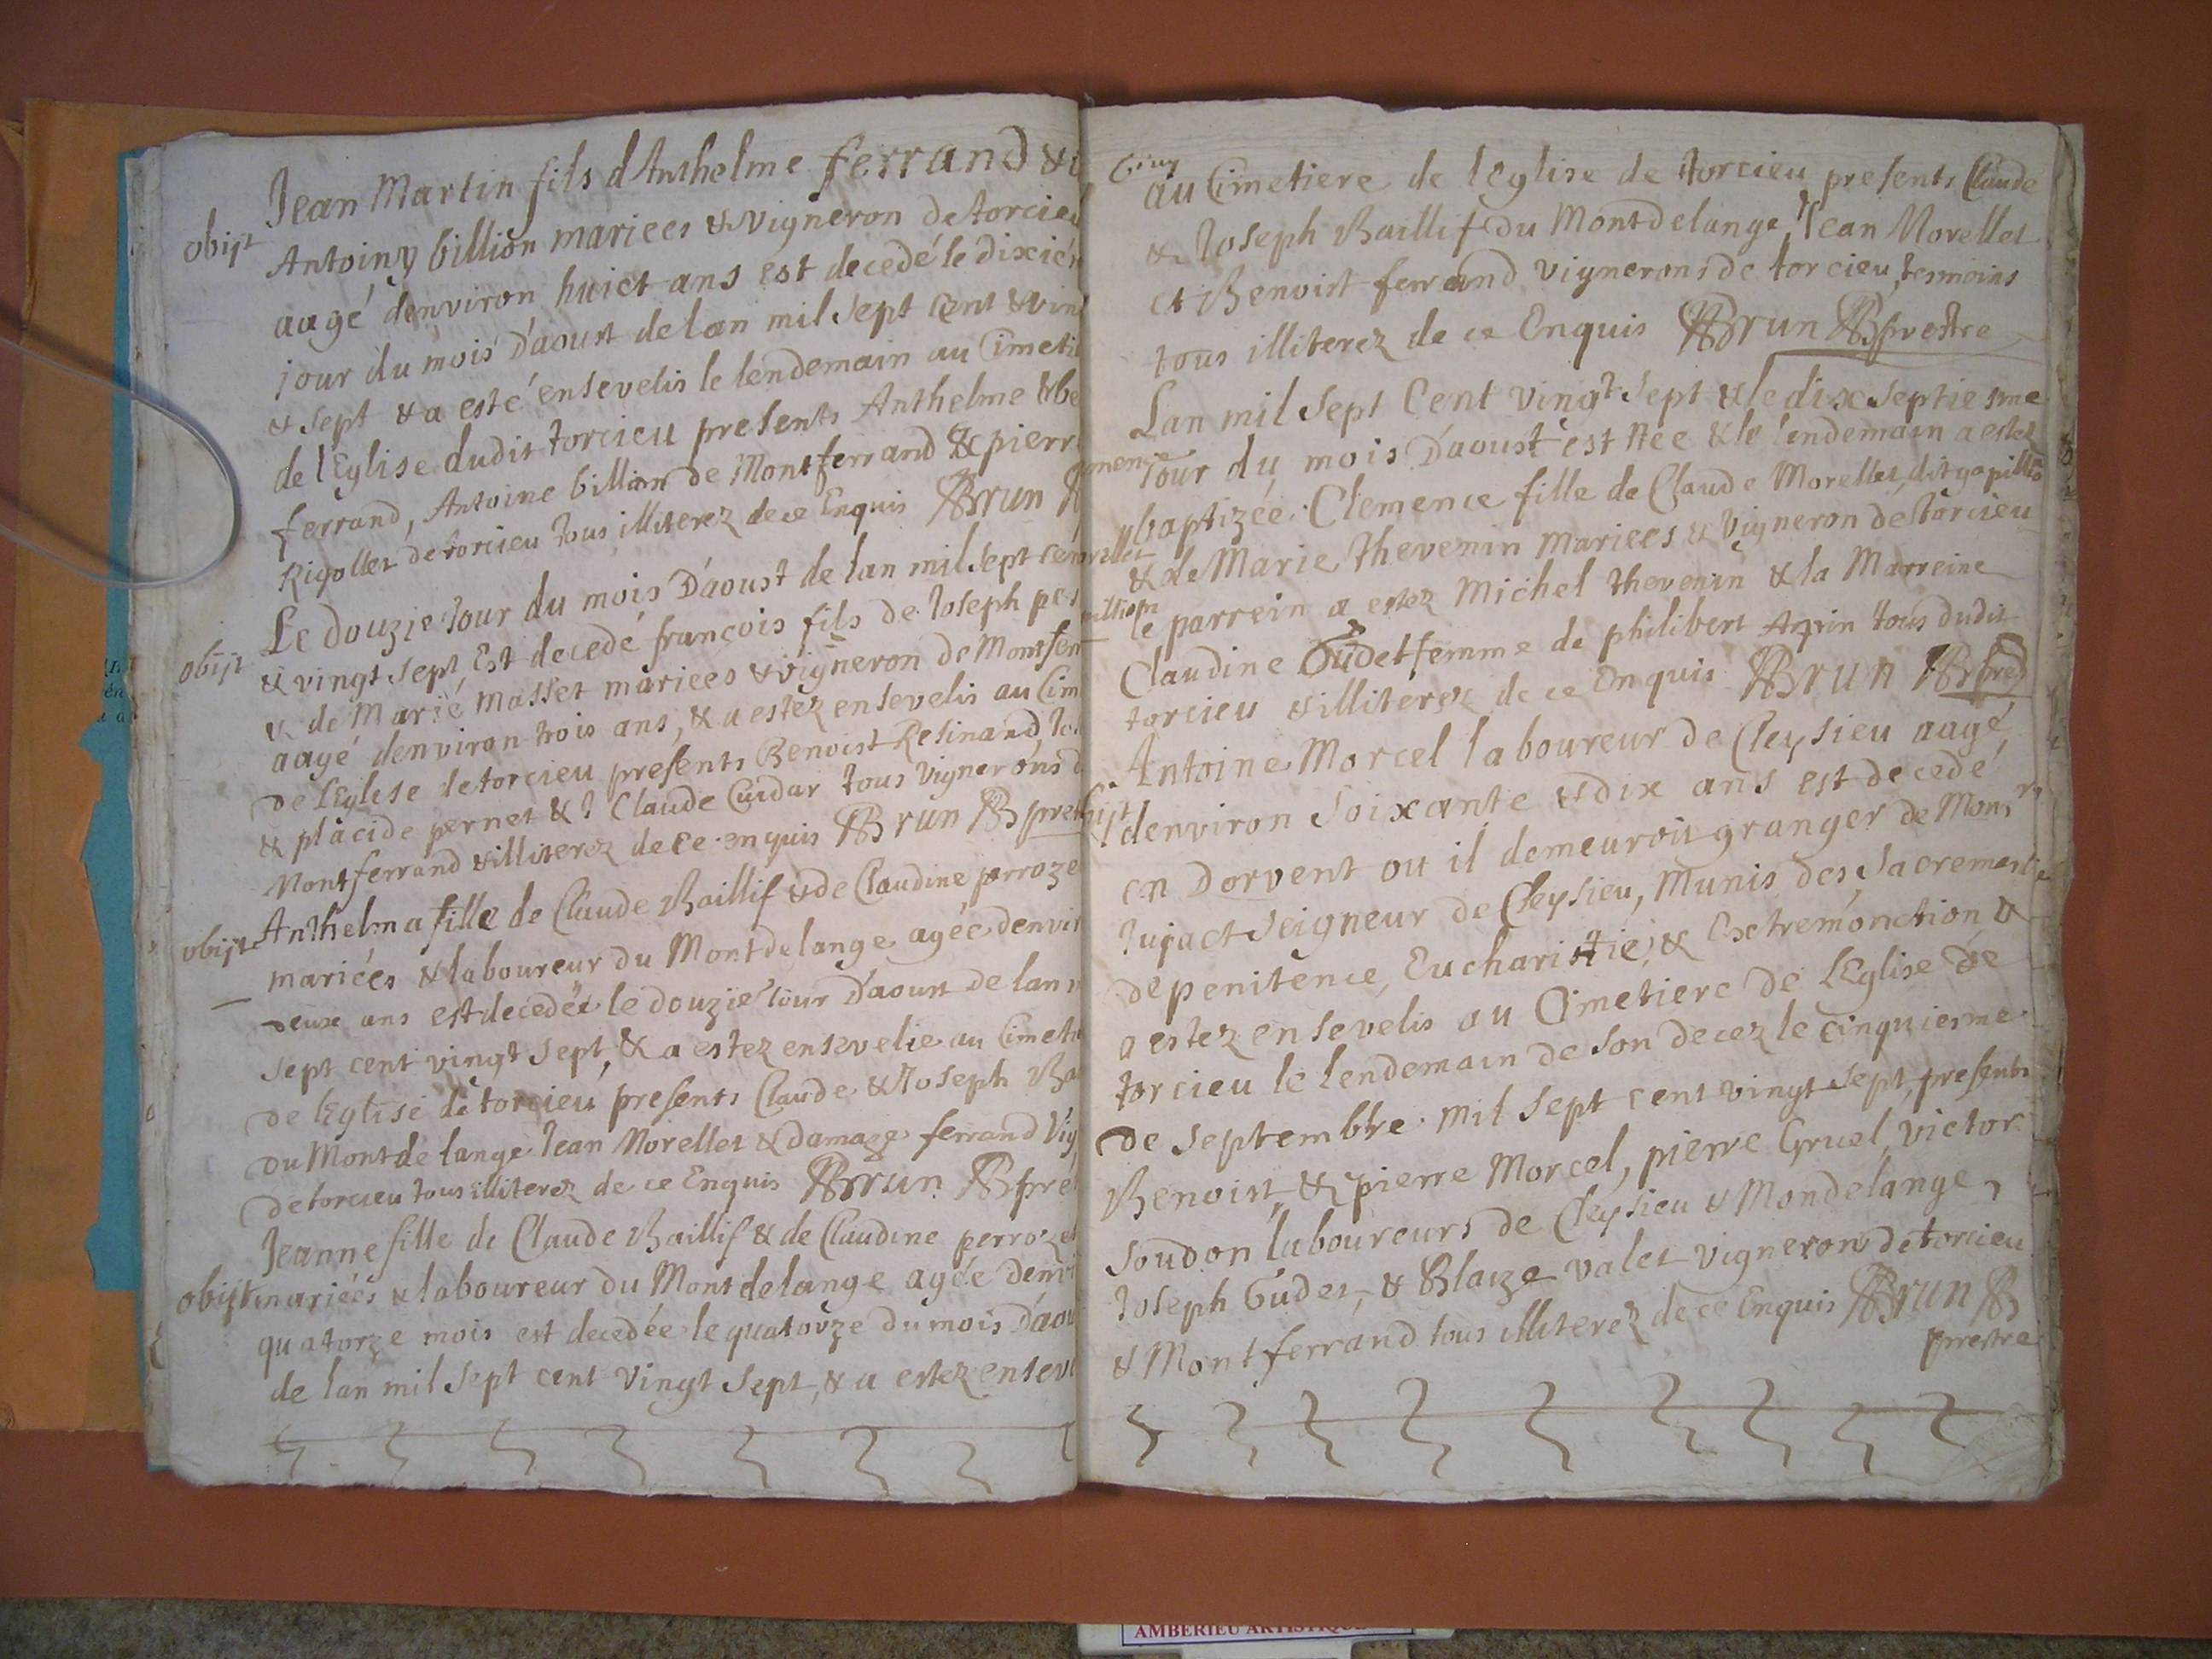 Jean Martin fils dAnthelme ferrand &
obijt
Antoiny billion mariees & vigneron de torcieu
aagé denviron huict ans est decedé le dixié
jour du mois D'aoust de lan mil sept cent & vin
& sept & a esté ensevelis le lendemain au Cimeti
de lEglise dudit torcieu presents Anthelme &
ferrand, Antoine billion de Montferrand & pierr
Rigollet de torcieu tous illiterez de ce Enquis Brun
Le douzie Jour du mois D'aoust de lan mil sept cen
obijt
& vingt sept, Est decedé françois fils de Joseph per
& de Marie Masset mariees & vigneron de Montfer
aagé denviron trois ans, & a estez ensevelis au Cim
de lEglese de torcieu presents Benoist Resinand, Jo
& placide pernet & Claude Cuidar tous vignerons d
Montferrand & illiterez de ce enquis Brun prest
obijt
Anthelma fille de Claude Baillif & de Claudine perroze
mariées & laboureur du Montdelange agée denvir
deux ans est decedée le douzie Jour D'aoust de lan m
sept cent vingt sept, & a estez ensevelie au Cimeti
de lEglise de torcieu presents Claude & Joseph Ba
du Montdelange Jean Morellet & damaze ferrand Vig
de torcieu tous illiterez de ce Enquis Brun pre
Jeanne fille de Claude Baillif & de Claudine perrozet
obijt
mariées & laboureur du Montdelange agée denvi
quatorze mois est decedée le quatorze du mois D'aou
de lan mil sept cent vingt sept, & a estez enseve
au Cimetiere de lEglise de torcieu presents Claude
& Joseph Baillif du Montdelange, Jean Morellet
et Benoist ferrand vignerons de torcieu, tesmoins
tous illiterez de ce Enquis Brun prestre
Lan mil sept Cent vingt sept & le dix septiesme
Jour du mois D'aoust est née & le lendemain a estez
baptizée Clemence fille de Claude Morellet, dit
& de Marie thevenin mariees & Vigneron de torcieu
le parrein a estez Michel thevenin & la Marreine
Claudine Gudet femme de philibert Arpin tous dudit
torcieu & illiterez de ce Enquis Brun pre
Antoine Morcel laboureur de Cleysieu aagé
denviron soixante & dix ans est decedé
en Dorvent ou il demeuroit granger de Monsr
Jujact Seigneur de Cleysieu, Munis des sacrements
de penitence, Eucharistie, & Extremonction &
a estez ensevelis au Cimetiere de lEglise de
torcieu le lendemain de son decez le cinquiesme
de septembre mil sept cent vingt sept, presents
Benoist, & pierre Morcel, pierre Gruel, victor
soudon laboureurs de Cleysieu & Mondelange,
Joseph Gudet, & Blaize valet vignerons de torcieu
& Montferrand tous illiterez de ce Enquis Brun
prestre
AMBERIEU ARTISTIQUE